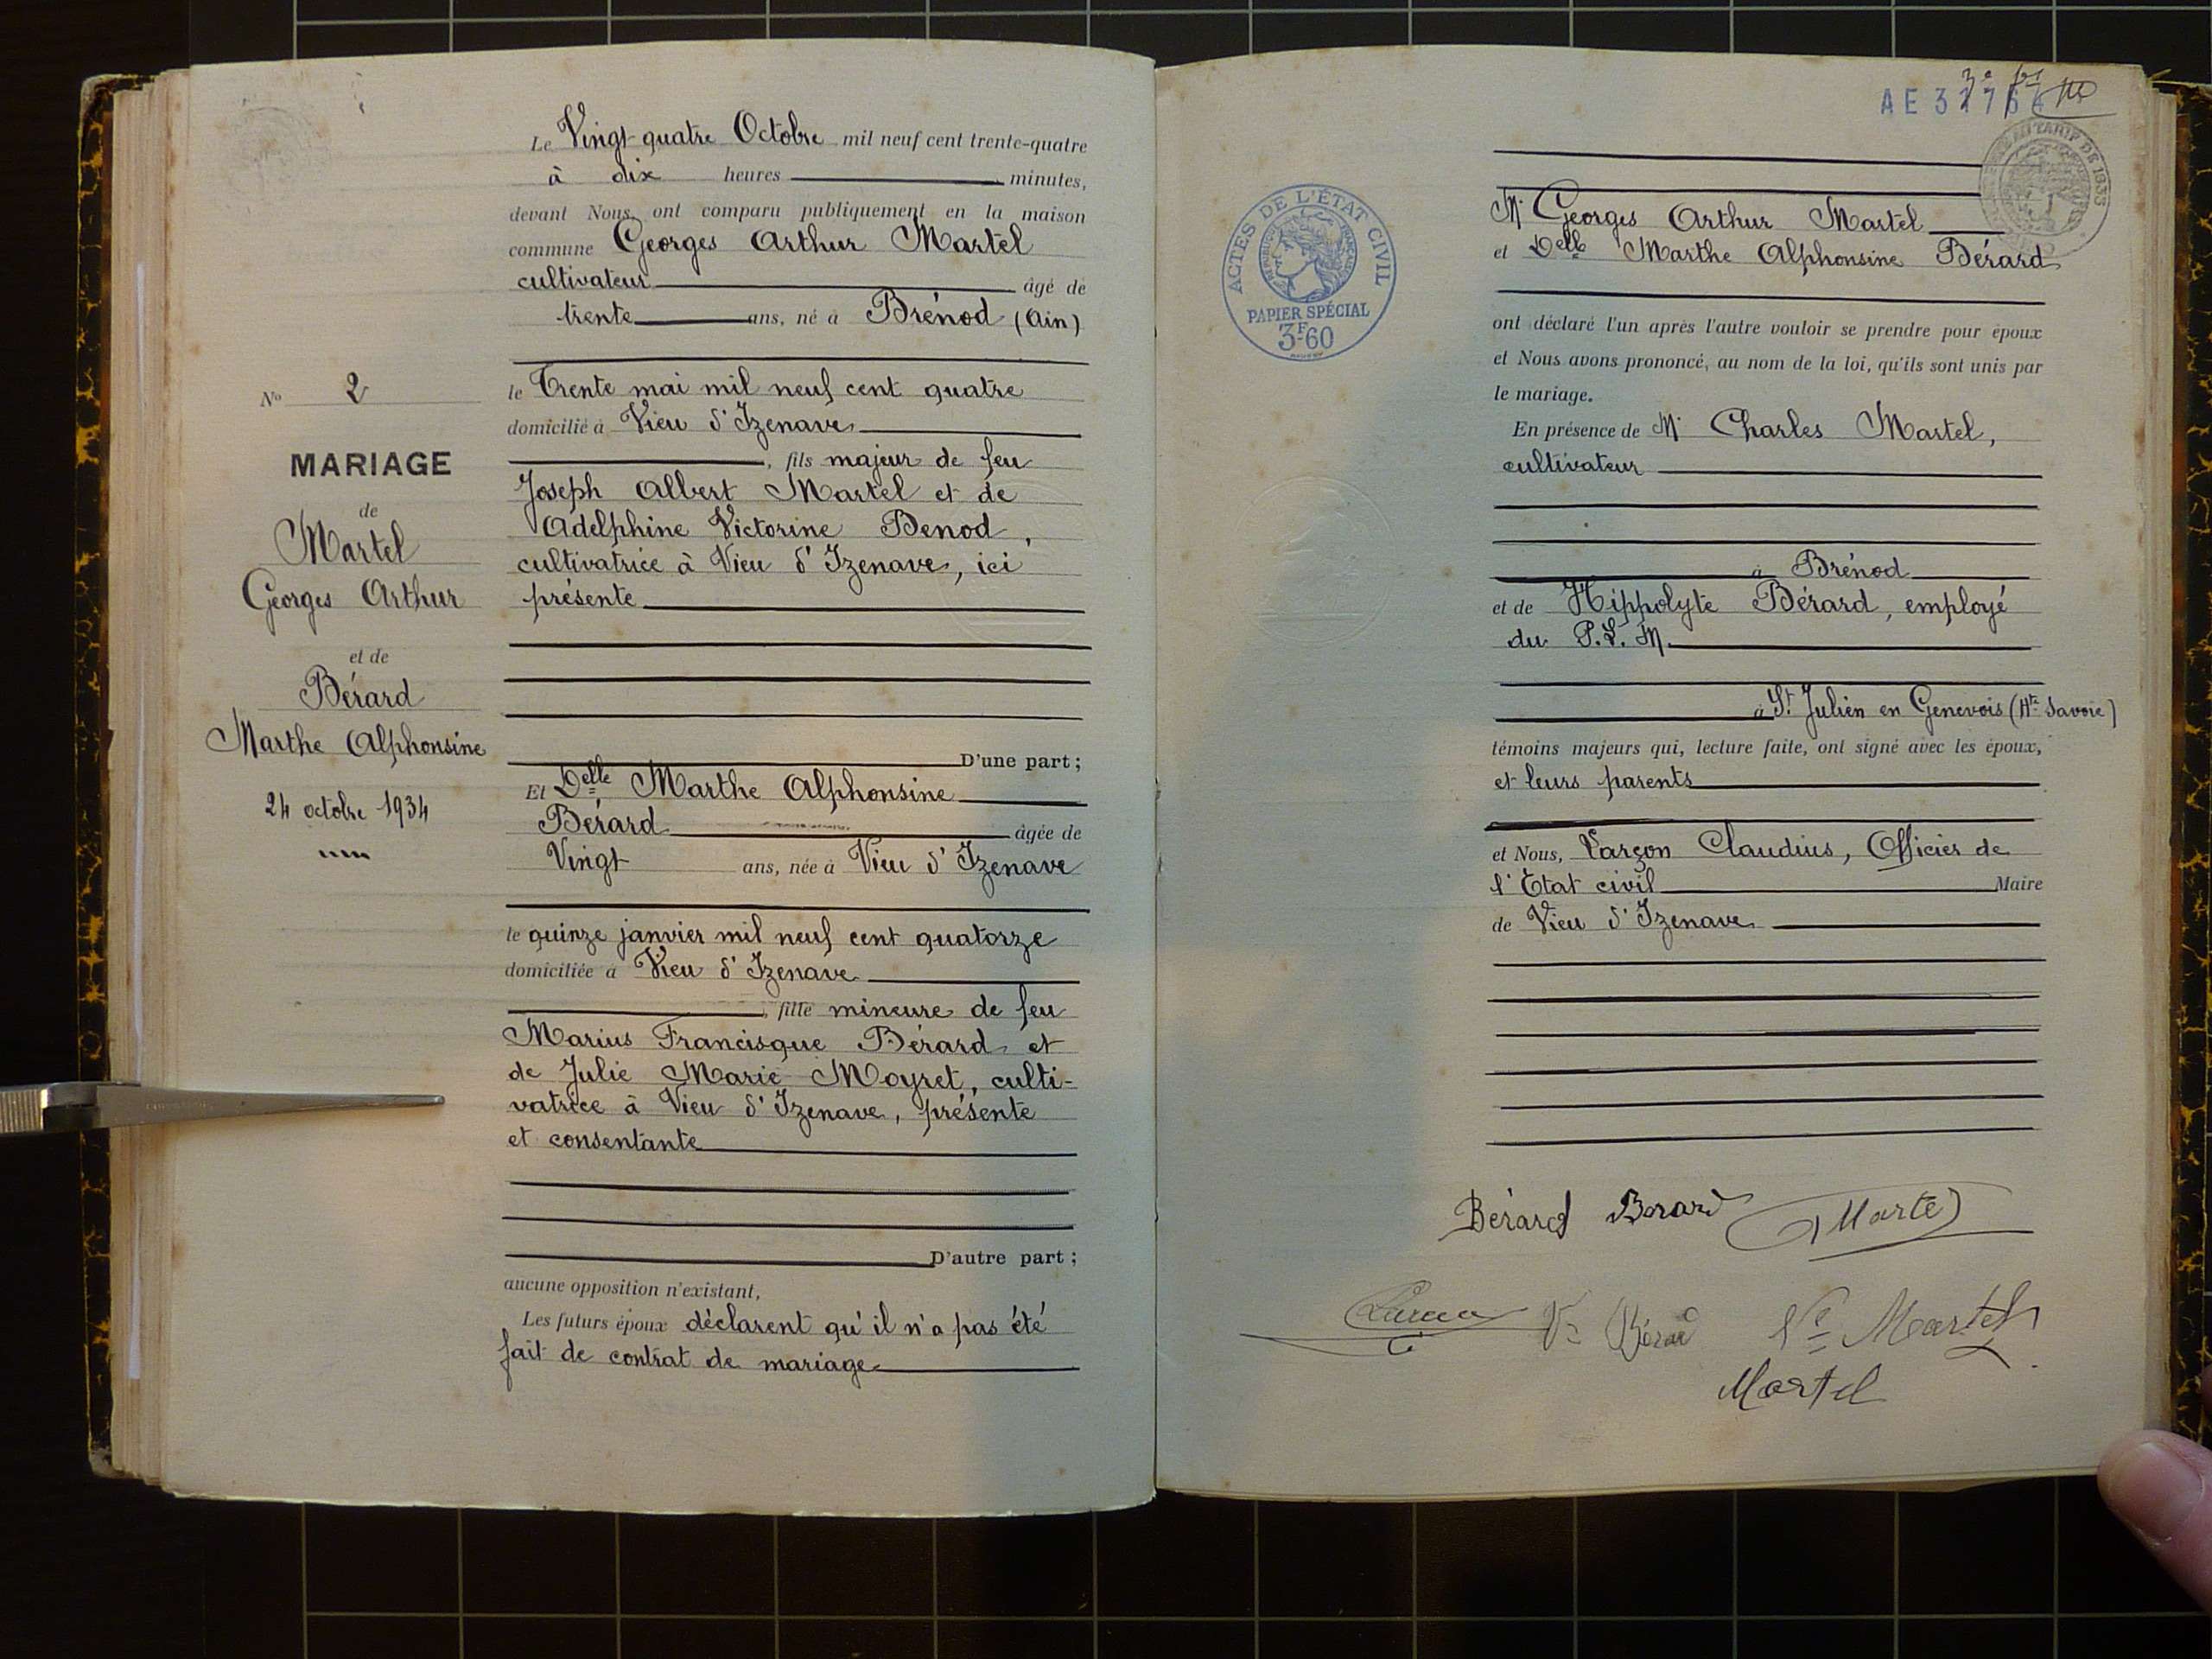 Le Vingt quatre Octobre mil neuf cent trente-quatre
à dix heures minutes,
devant Nous, ont comparu publiquement en la maison
commune Georges Arthur Martel
cultivateur âgé de
trente ans, né à Brénod (Ain)
le Trente mai mil neuf cent quatre
domicilié à Vieu d'Izenave
, fils majeur de feu
Joseph Albert Martel et de
Adelphine Victorine Benod,
cultivatrice à Vieu d'Izenave, ici
présente
D'une part;
Et Delle Marthe Alphonsine
Bérard âgée de
Vingt ans, née à Vieu d'Izenave
le quinze janvier mil neuf cent quatorze
domiciliée à Vieu d'Izenave
, fille mineure de feu
Marius Francisque Bérard et
de Julie Marie Moyret, culti-
vatrice à Vieu d'Izenave, présente
et consentante
D'autre part;
aucune opposition n'existant,
Les futurs époux déclarent qu'il n'a pas été
fait de contrat de mariage
No 2
MARIAGE
de
Martel
Georges Arthur
et de
Bérard
Marthe Alphonsine
24 octobre 1934
AE
ACTES DE L'ÉTAT CIVIL
PAPIER SPÉCIAL
3F60
TARIF DE
Mr Georges Arthur Martel
et Delle Marthe Alphonsine Bérard
ont déclaré l'un après l'autre vouloir se prendre pour époux
et Nous avons prononcé, au nom de la loi, qu'ils sont unis par
le mariage.
En présence de Mr Charles Martel,
cultivateur
à Brénod
et de Hippolyte Bérard, employé
du P.L.M.
à St Julien en Genevois (Hte Savoie)
témoins majeurs qui, lecture faite, ont signé avec les époux,
et leurs parents
et Nous, Varçon Claudius, Officier de
l'Etat civil Maire
de Vieu d'Izenave
Bérard Berard Martel
Ve Bérard Ve Martel
Martel